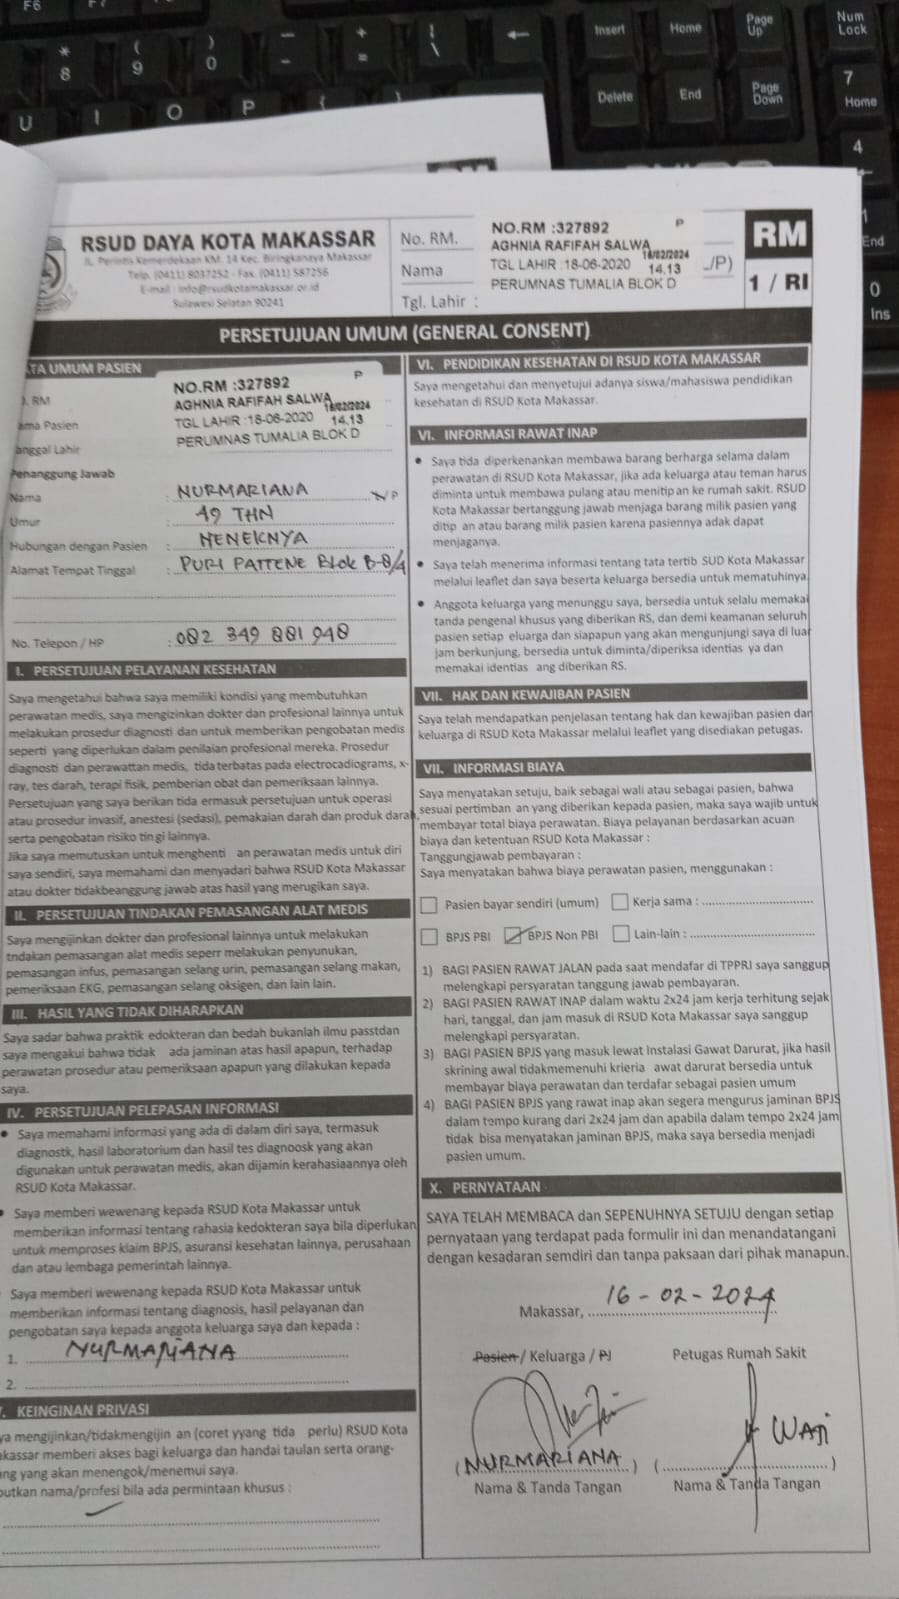 F6
F7
* 8
( 9
) 0
U
I
O
P
Insert
Home
Page Up
Num Lock
Delete
End
Page Down
7 Home
4
1 End
0 Ins
RSUD DAYA KOTA MAKASSAR
JL. Perintis Kemerdekaan KM. 14 Kec. Biringkanaya Makassar
Telp. (0411) 8037252 - Fax. (0411) 587256
E-mail : info@rsudkotamakassar.or.id
Sulawesi Selatan 90241
No. RM.
Nama
Tgl. Lahir :
NO.RM :327892 P
AGHNIA RAFIFAH SALWA
TGL LAHIR :18-06-2020 16/02/2024 14.13
PERUMNAS TUMALIA BLOK D
./P)
RM
1 / RI
PERSETUJUAN UMUM (GENERAL CONSENT)
TA UMUM PASIEN
. RM
ama Pasien
anggal Lahir
NO.RM :327892 P
AGHNIA RAFIFAH SALWA
TGL LAHIR :18-06-2020 16/02/2024 14.13
PERUMNAS TUMALIA BLOK D
Penanggung Jawab
Nama : NURMARIANA L/P
Umur : 49 THN
Hubungan dengan Pasien : NENEKNYA
Alamat Tempat Tinggal : PURI PATTENE Blok B-8/4
No. Telepon / HP : 082 349 881 948
I. PERSETUJUAN PELAYANAN KESEHATAN
Saya mengetahui bahwa saya memiliki kondisi yang membutuhkan
perawatan medis, saya mengizinkan dokter dan profesional lainnya untuk
melakukan prosedur diagnosti dan untuk memberikan pengobatan medis
seperti yang diperlukan dalam penilaian profesional mereka. Prosedur
diagnosti dan perawattan medis, tida terbatas pada electrocadiograms, x-
ray, tes darah, terapi fisik, pemberian obat dan pemeriksaan lainnya.
Persetujuan yang saya berikan tida ermasuk persetujuan untuk operasi
atau prosedur invasif, anestesi (sedasi), pemakaian darah dan produk darah,
serta pengobatan risiko tin gi lainnya.
Jika saya memutuskan untuk menghenti an perawatan medis untuk diri
saya sendiri, saya memahami dan menyadari bahwa RSUD Kota Makassar
atau dokter tidakbeanggung jawab atas hasil yang merugikan saya.
II. PERSETUJUAN TINDAKAN PEMASANGAN ALAT MEDIS
Saya mengijinkan dokter dan profesional lainnya untuk melakukan
tndakan pemasangan alat medis seperr melakukan penyunukan,
pemasangan infus, pemasangan selang urin, pemasangan selang makan,
pemeriksaan EKG, pemasangan selang oksigen, dan lain lain.
III. HASIL YANG TIDAK DIHARAPKAN
Saya sadar bahwa praktik edokteran dan bedah bukanlah ilmu passtdan
saya mengakui bahwa tidak ada jaminan atas hasil apapun, terhadap
perawatan prosedur atau pemeriksaan apapun yang dilakukan kepada
saya.
IV. PERSETUJUAN PELEPASAN INFORMASI
• Saya memahami informasi yang ada di dalam diri saya, termasuk
diagnostk, hasil laboratorium dan hasil tes diagnoosk yang akan
digunakan untuk perawatan medis, akan dijamin kerahasiaannya oleh
RSUD Kota Makassar.
• Saya memberi wewenang kepada RSUD Kota Makassar untuk
memberikan informasi tentang rahasia kedokteran saya bila diperlukan
untuk memproses klaim BPJS, asuransi kesehatan lainnya, perusahaan
dan atau lembaga pemerintah lainnya.
Saya memberi wewenang kepada RSUD Kota Makassar untuk
memberikan informasi tentang diagnosis, hasil pelayanan dan
pengobatan saya kepada anggota keluarga saya dan kepada :
1. NURMARIANA
2.
. KEINGINAN PRIVASI
ya mengijinkan/tidakmengijin an (coret yyang tida perlu) RSUD Kota
akassar memberi akses bagi keluarga dan handai taulan serta orang-
ng yang akan menengok/menemui saya.
butkan nama/profesi bila ada permintaan khusus :
VI. PENDIDIKAN KESEHATAN DI RSUD KOTA MAKASSAR
Saya mengetahui dan menyetujui adanya siswa/mahasiswa pendidikan
kesehatan di RSUD Kota Makassar.
VI. INFORMASI RAWAT INAP
• Saya tida diperkenankan membawa barang berharga selama dalam
perawatan di RSUD Kota Makassar, jika ada keluarga atau teman harus
diminta untuk membawa pulang atau menitip an ke rumah sakit. RSUD
Kota Makassar bertanggung jawab menjaga barang milik pasien yang
ditip an atau barang milik pasien karena pasiennya adak dapat
menjaganya.
• Saya telah menerima informasi tentang tata tertib SUD Kota Makassar
melalui leaflet dan saya beserta keluarga bersedia untuk mematuhinya.
• Anggota keluarga yang menunggu saya, bersedia untuk selalu memakai
tanda pengenal khusus yang diberikan RS, dan demi keamanan seluruh
pasien setiap eluarga dan siapapun yang akan mengunjungi saya di luar
jam berkunjung, bersedia untuk diminta/diperiksa identias ya dan
memakai identias ang diberikan RS.
VII. HAK DAN KEWAJIBAN PASIEN
Saya telah mendapatkan penjelasan tentang hak dan kewajiban pasien dan
keluarga di RSUD Kota Makassar melalui leaflet yang disediakan petugas.
VII. INFORMASI BIAYA
Saya menyatakan setuju, baik sebagai wali atau sebagai pasien, bahwa
sesuai pertimban an yang diberikan kepada pasien, maka saya wajib untuk
membayar total biaya perawatan. Biaya pelayanan berdasarkan acuan
biaya dan ketentuan RSUD Kota Makassar :
Tanggungjawab pembayaran :
Saya menyatakan bahwa biaya perawatan pasien, menggunakan :
Pasien bayar sendiri (umum) Kerja sama :
BPJS PBI BPJS Non PBI Lain-lain :
1) BAGI PASIEN RAWAT JALAN pada saat mendafar di TPPRJ saya sanggup
melengkapi persyaratan tanggung jawab pembayaran.
2) BAGI PASIEN RAWAT INAP dalam waktu 2x24 jam kerja terhitung sejak
hari, tanggal, dan jam masuk di RSUD Kota Makassar saya sanggup
melengkapi persyaratan.
3) BAGI PASIEN BPJS yang masuk lewat Instalasi Gawat Darurat, jika hasil
skrining awal tidakmemenuhi krieria awat darurat bersedia untuk
membayar biaya perawatan dan terdafar sebagai pasien umum
4) BAGI PASIEN BPJS yang rawat inap akan segera mengurus jaminan BPJS
dalam tempo kurang dari 2x24 jam dan apabila dalam tempo 2x24 jam
tidak bisa menyatakan jaminan BPJS, maka saya bersedia menjadi
pasien umum.
X. PERNYATAAN
SAYA TELAH MEMBACA dan SEPENUHNYA SETUJU dengan setiap
pernyataan yang terdapat pada formulir ini dan menandatangani
dengan kesadaran semdiri dan tanpa paksaan dari pihak manapun.
Makassar, 16 - 02 - 2024
Pasien / Keluarga / PJ Petugas Rumah Sakit
(NURMARIANA) (WATI)
Nama & Tanda Tangan Nama & Tanda Tangan